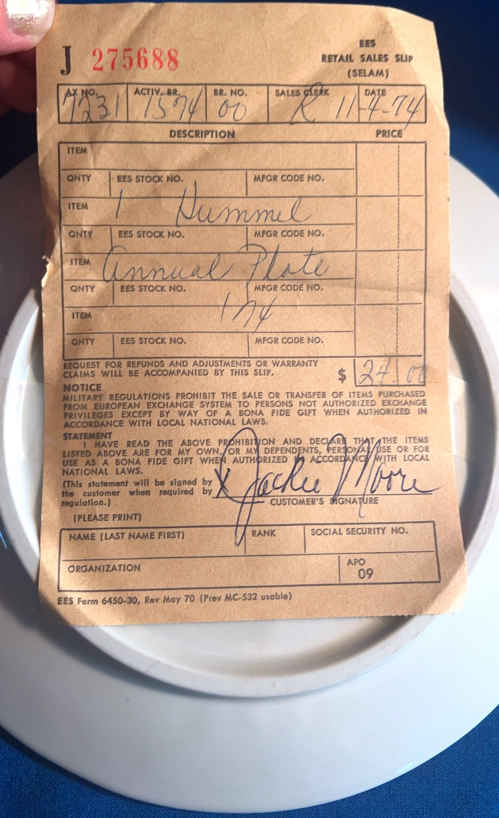 J 275688
EES
RETAIL SALES SLIP
(SELAM)
AX NO. ACTIV. BR. BR. NO. SALES CLERK DATE
7231 1574 00 R 11-4-74
DESCRIPTION PRICE
ITEM
QNTY EES STOCK NO. MFGR CODE NO.
ITEM 1 Hummel
QNTY EES STOCK NO. MFGR CODE NO.
ITEM Annual Plate
QNTY EES STOCK NO. MFGR CODE NO.
ITEM
QNTY EES STOCK NO. MFGR CODE NO.
REQUEST FOR REFUNDS AND ADJUSTMENTS OR WARRANTY
CLAIMS WILL BE ACCOMPANIED BY THIS SLIP. $ 24.00
NOTICE
MILITARY REGULATIONS PROHIBIT THE SALE OR TRANSFER OF ITEMS PURCHASED
FROM EUROPEAN EXCHANGE SYSTEM TO PERSONS NOT AUTHORIZED EXCHANGE
PRIVILEGES EXCEPT BY WAY OF A BONA FIDE GIFT WHEN AUTHORIZED IN
ACCORDANCE WITH LOCAL NATIONAL LAWS.
STATEMENT
I HAVE READ THE ABOVE PROHIBITION AND DECLARE THAT THE ITEMS
LISTED ABOVE ARE FOR MY OWN, OR MY DEPENDENTS, PERSONAL USE OR FOR
USE AS A BONA FIDE GIFT WHEN AUTHORIZED IN ACCORDANCE WITH LOCAL
NATIONAL LAWS.
(This statement will be signed by
the customer when required by
regulation.)
X Jackie Moore
CUSTOMER'S SIGNATURE
(PLEASE PRINT)
NAME (LAST NAME FIRST) RANK SOCIAL SECURITY NO.
ORGANIZATION APO
09
EES Form 6450-30, Rev May 70 (Prev MC-532 usable)